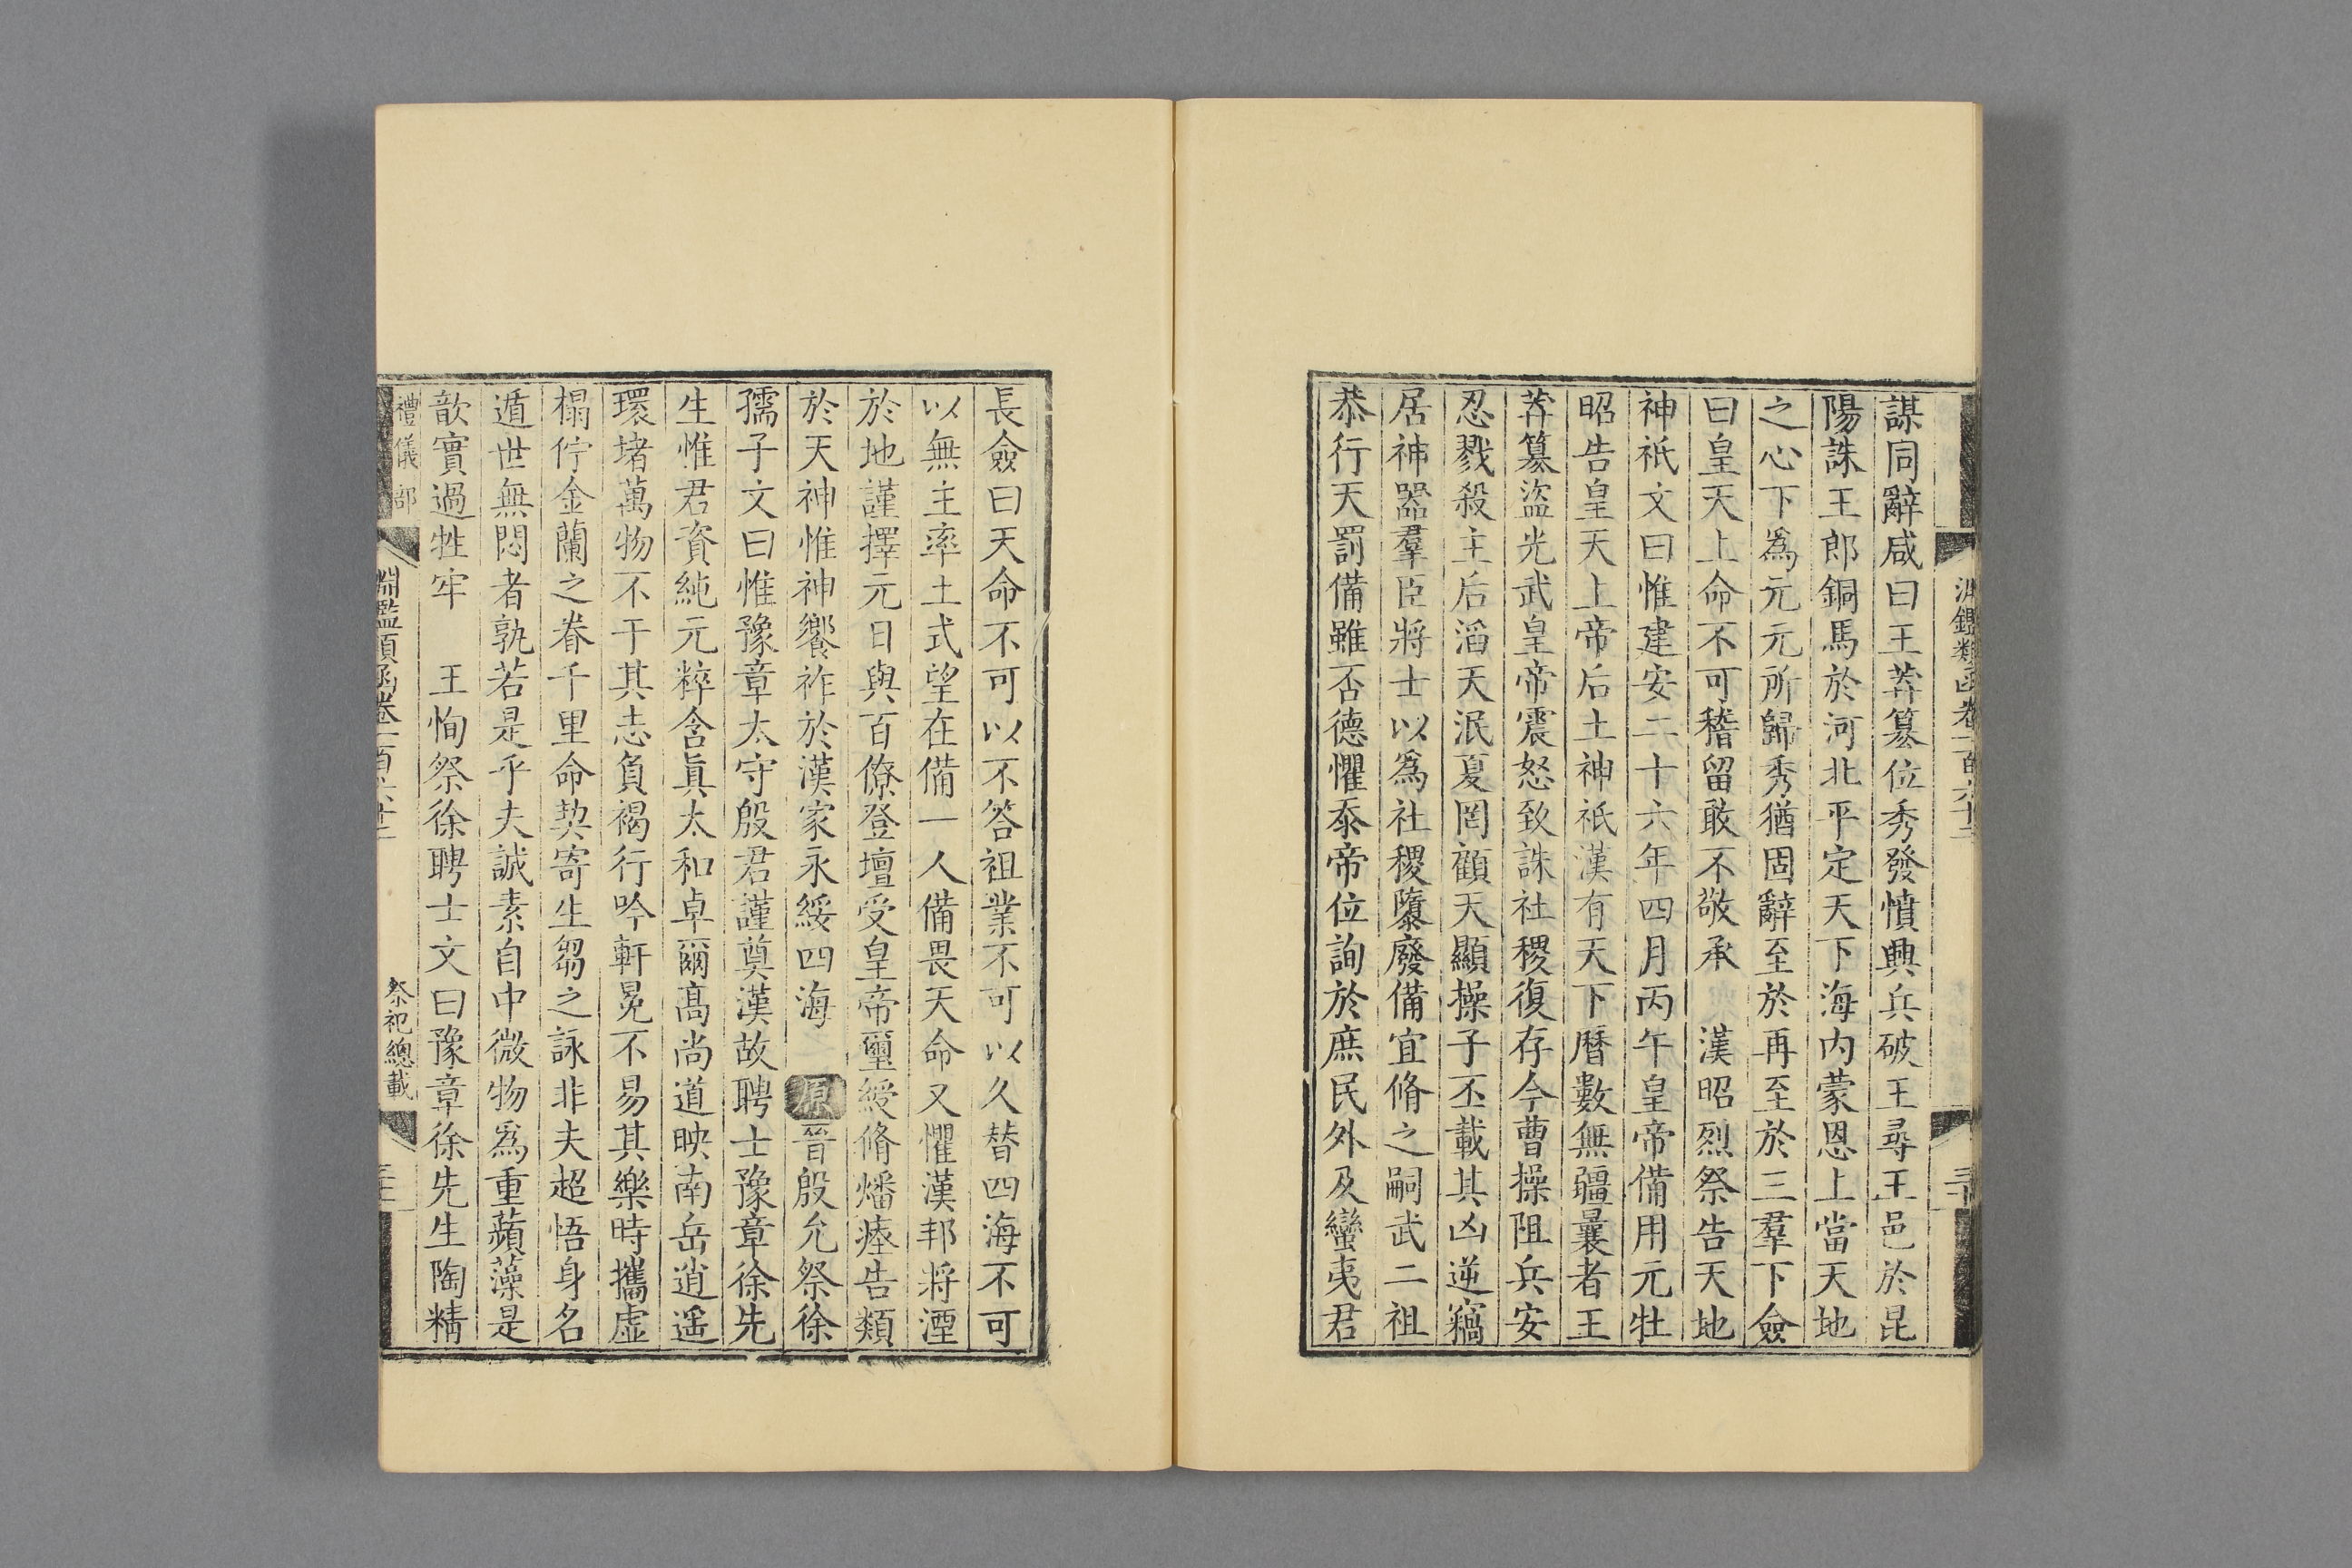 淵鑑類函卷一百六十二
謀同辭咸曰王莽篡位秀發憤興兵破王尋王邑於昆
陽誅王郎銅馬於河北平定天下海内蒙恩上當天地
之心下爲元元所歸秀猶固辭至於再至於三羣下僉
曰皇天上命不可稽留敢不敬承　漢昭烈祭告天地
神祇文曰惟建安二十六年四月丙午皇帝備用元牡
昭告皇天上帝后土神祇漢有天下曆數無疆曩者王
莽篡盜光武皇帝震怒致誅社稷復存今曹操阻兵安
忍戮殺主后滔天泯夏罔顧天顯操子丕載其凶逆竊
居神器羣臣將士以爲社稷隳廢備宜脩之嗣武二祖
恭行天罰備雖否德懼忝帝位詢於庶民外及蠻夷君
長僉曰天命不可以不答祖業不可以久替四海不可
以無主率土式望在備一人備畏天命又懼漢邦將湮
於地謹擇元日與百僚登壇受皇帝璽綬脩燔瘞告類
於天神惟神饗祚於漢家永綏四海　原晉殷允祭徐
孺子文曰惟豫章太守殷君謹奠漢故聘士豫章徐先
生惟君資純元粹含眞太和卓爾高尚道映南岳逍遥
環堵萬物不干其志負褐行吟軒冕不易其樂時攜虛
榻佇金蘭之眷千里命契寄生芻之詠非夫超悟身名
遁世無悶者孰若是乎夫誠素自中微物爲重蘋藻是
歆實過牲牢　王恂祭徐聘士文曰豫章徐先生陶精
禮儀部
淵鑑類函卷一百六十二
祭祀總載